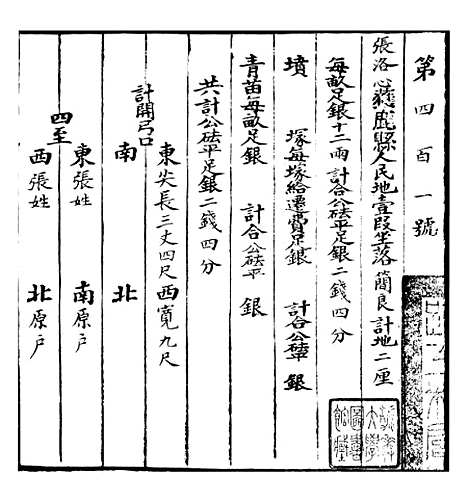 第四百一號
張洛心獲鹿縣人民地壹叚坐落簡良計地二厘
每畝足銀十二兩計合公砝平足銀二錢四分
墳　塚每塚給遷費足銀　計合公砝平　銀
青苗每畝足銀　計合公砝平　銀
共計公砝平足銀二錢四分
東尖長三丈四尺西寬九尺
計開弓口
南　北
東張姓　南原戶
四至
西張姓　北原戶
大學圖書館藏